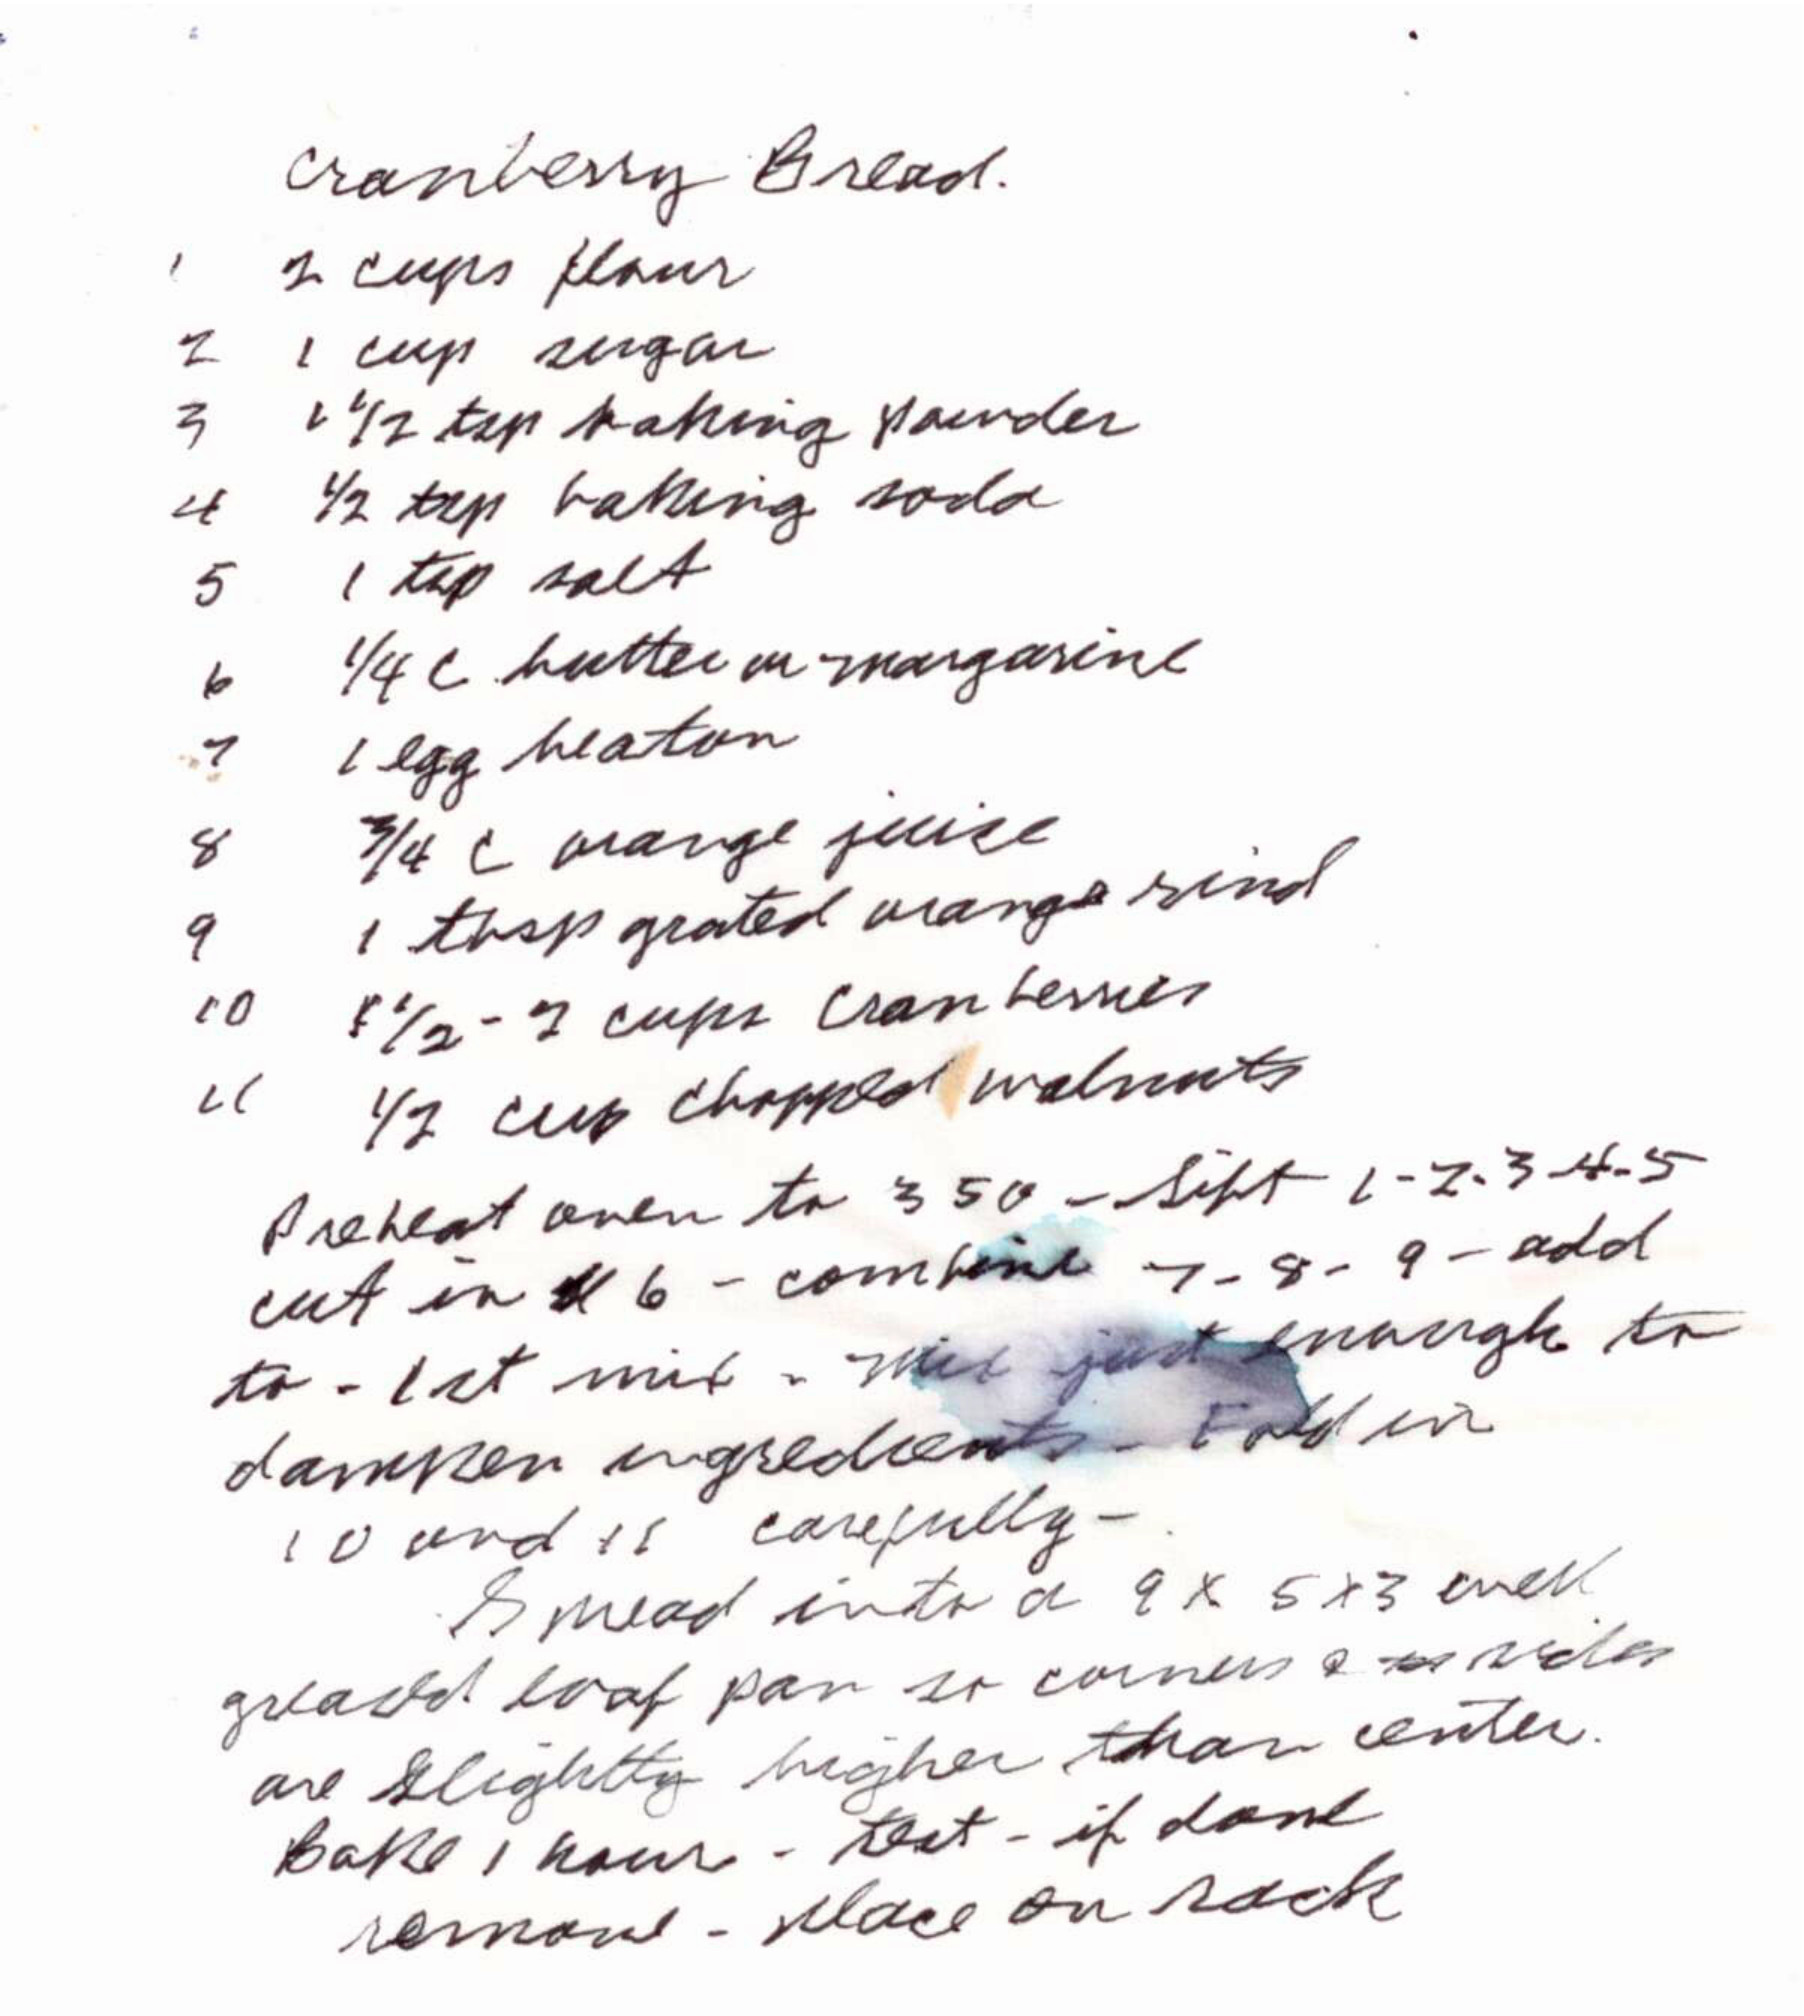 Cranberry Bread.
1 2 cups flour
2 1 cup sugar
3 1 1/2 tsp baking powder
4 1/2 tsp baking soda
5 1 tsp salt
6 1/4 c butter or margarine
7 1 egg beaton
8 3/4 c orange juise
9 1 tbsp grated orange rind
10 1 1/2 - 2 cups cranberries
11 1/2 cup chopped walnuts
Preheat oven to 350 - Sift 1-2-3-4-5
cut in 6 - combine 7-8-9 - add
to - 1st mix - mix just enough to
dampen ingredients - Fold in
10 and 11 carefully -
Spread into a 9 x 5 x 3 well
greased loaf pan so corners & sides
are slightly higher than center.
Bake 1 hour - test - if done
remove - place on rack